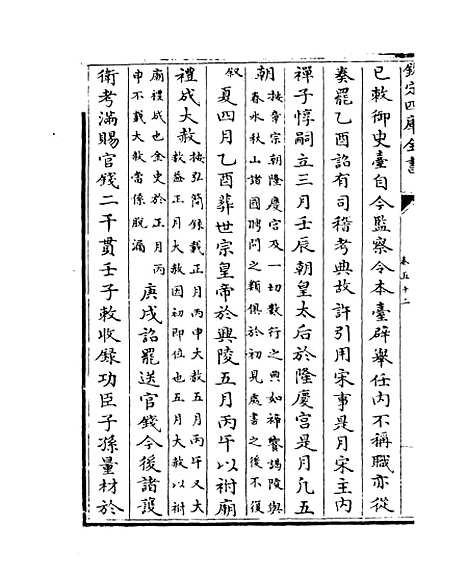 欽定四庫全書
卷五十二
已敕御史臺自今監察令本臺辟舉任内不稱職亦從
奏罷乙酉詔有司稽考典故許引用宋事是月宋主内
禪子惇嗣立三月壬辰朝皇太后於隆慶宮是月凡五
朝按章宗朝隆慶宮及一切數行之典如禘饗謁陵與
春水秋山諸國聘問之類俱於初見處書之後不復
叙夏四月乙酉葬世宗皇帝於興陵五月丙午以祔廟
禮成大赦按弘簡錄載正月丙申大赦五月丙午又大
赦蓋正月大赦因初即位也五月大赦以祔
廟禮成也金史於正月丙
申不載大赦當係脱漏
庚戌詔罷送官錢今後諸護
衛考滿賜官錢二千貫壬子敕收錄功臣子孫量材於